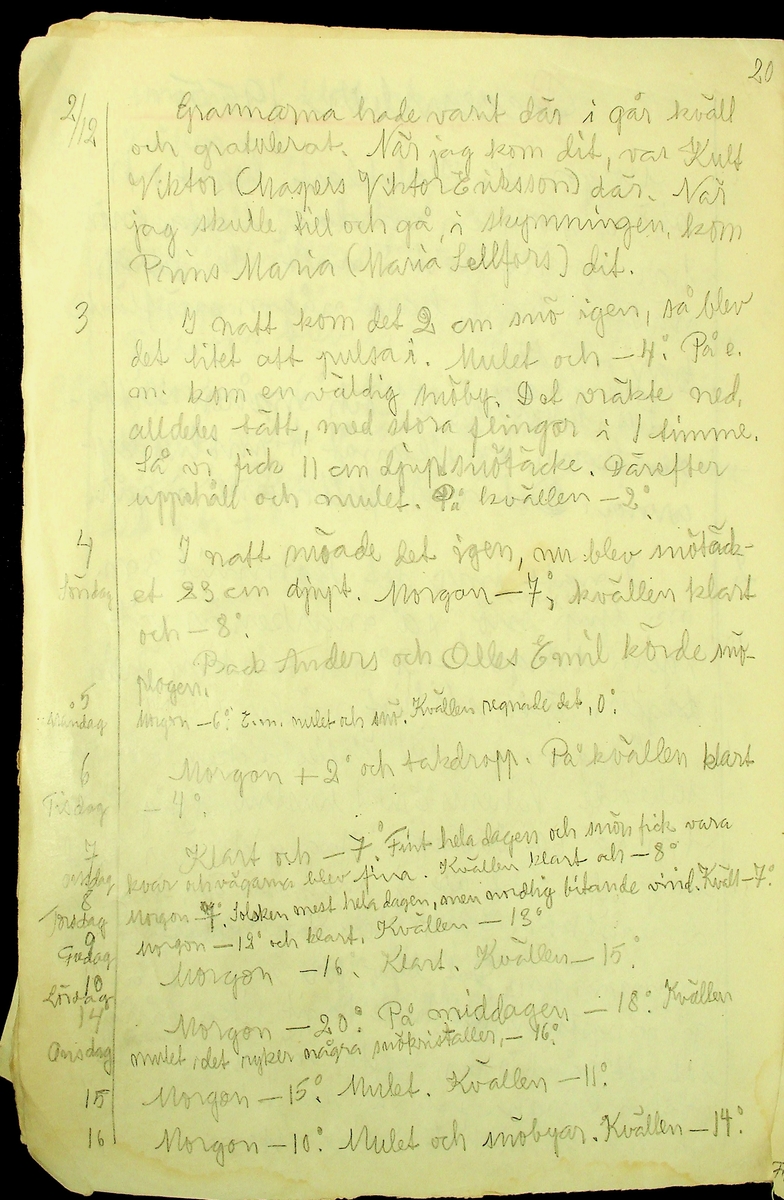 20
2/12 Grannarna hade varit där i går kväll
och gratulerat. När jag kom dit, var Kult
Viktor (Magers Viktor Eriksson) där. När
jag skulle till och gå, i skymningen, kom
Prins Maria (Maria Sellfors) dit.
3 I natt kom det 2 cm snö igen, så blev
det litet att pulsa i. Mulet och -4°. På e.
m. kom en väldig snöby. Det vräkte ned,
alldeles tätt, med stora flingor i 1 timme.
Så vi fick 11 cm djupt snötäcke. Därefter
uppehåll och mulet. På kvällen -2°
4 I natt snöade det igen, nu blev snötäck-
Söndag et 23 cm djupt. Morgon -7°, kvällen klart
och -8°.
Back Anders och Olles Emil körde snö-
plogen.
5 Måndag Morgon -6°. E.m. mulet och snö. Kvällen regnade det, 0°.
6 Morgon +2° och takdropp. På kvällen klart
Tisdag -4°.
7 Klart och -7°. Fint hela dagen och snön fick vara
onsdag kvar och vägarna blev fina. Kvällen klart och -8°
8 Torsdag Morgon -7°. Solsken mest hela dagen, men nordlig bitande vind. Kväll -7°.
9 Fredag Morgon -12° och klart. Kvällen -13°
10 Lördag Morgon -16°. Klart. Kvällen -15°.
14 Morgon -20°. På middagen -18°. Kvällen
Onsdag mulet, det ryker några snökristaller, -16°.
15 Morgon -15°. Mulet. Kvällen -11°.
16 Morgon -10°. Mulet och snöbyar. Kvällen -14°.